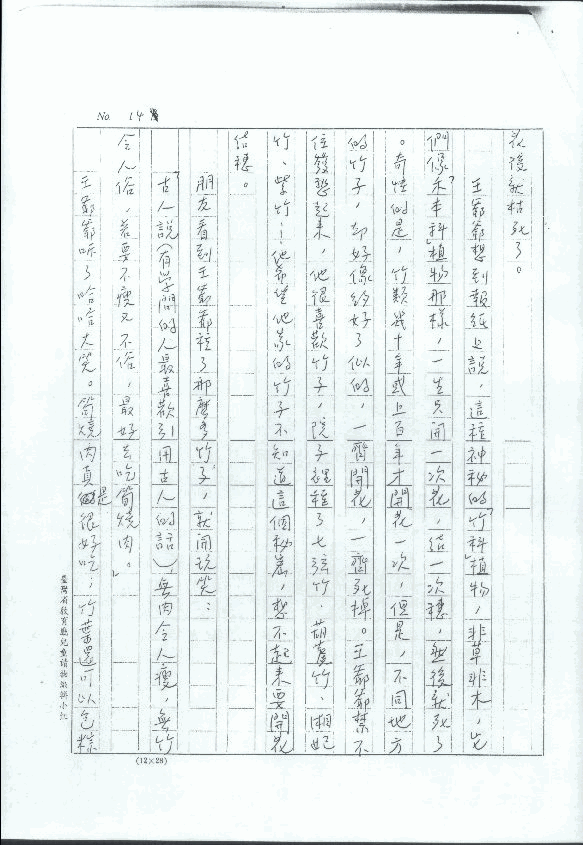 No. 14
衣後就枯死了。
王爺爺想到報紙上說,這種神秘的「竹科」植物,非草非木,它
們像「禾本科」植物那樣,一生只開一次花,結一次穗,然後就死了
。奇怪的是,竹類幾十年或上百年才開花一次,但是,不同地方
的竹子,却好像約好了似的,一齊開花,一齊死掉。王爺爺禁不
住發愁起來,他很喜歡竹子,院子裡種了七弦竹、葫蘆竹、湘妃
竹、紫竹…他希望他家的竹子不知道這個秘密,想不起來要開花
結穗。
朋友看到王爺爺種了那麼多竹子,就開玩笑:
古人說(有學問的人最喜歡引用古人的話)「無肉令人瘦,無竹
令人俗,若要不瘦又不俗,最好去吃筍燒肉。」
王爺爺听了哈哈大笑。筍燒肉真是很好吃;竹葉還可以包粽
臺灣省教育廳兒童讀物編輯小組
(12×28)